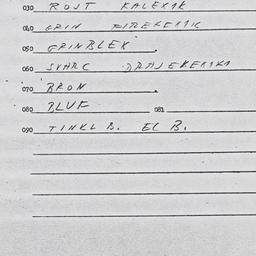 030 ROJT KALEKAR
040 GRIN
050 GRINBLEK
060 SVARC DRAJEKERSKA
070 BRON
080 BLUF 081
090 TINKL B. EL B.